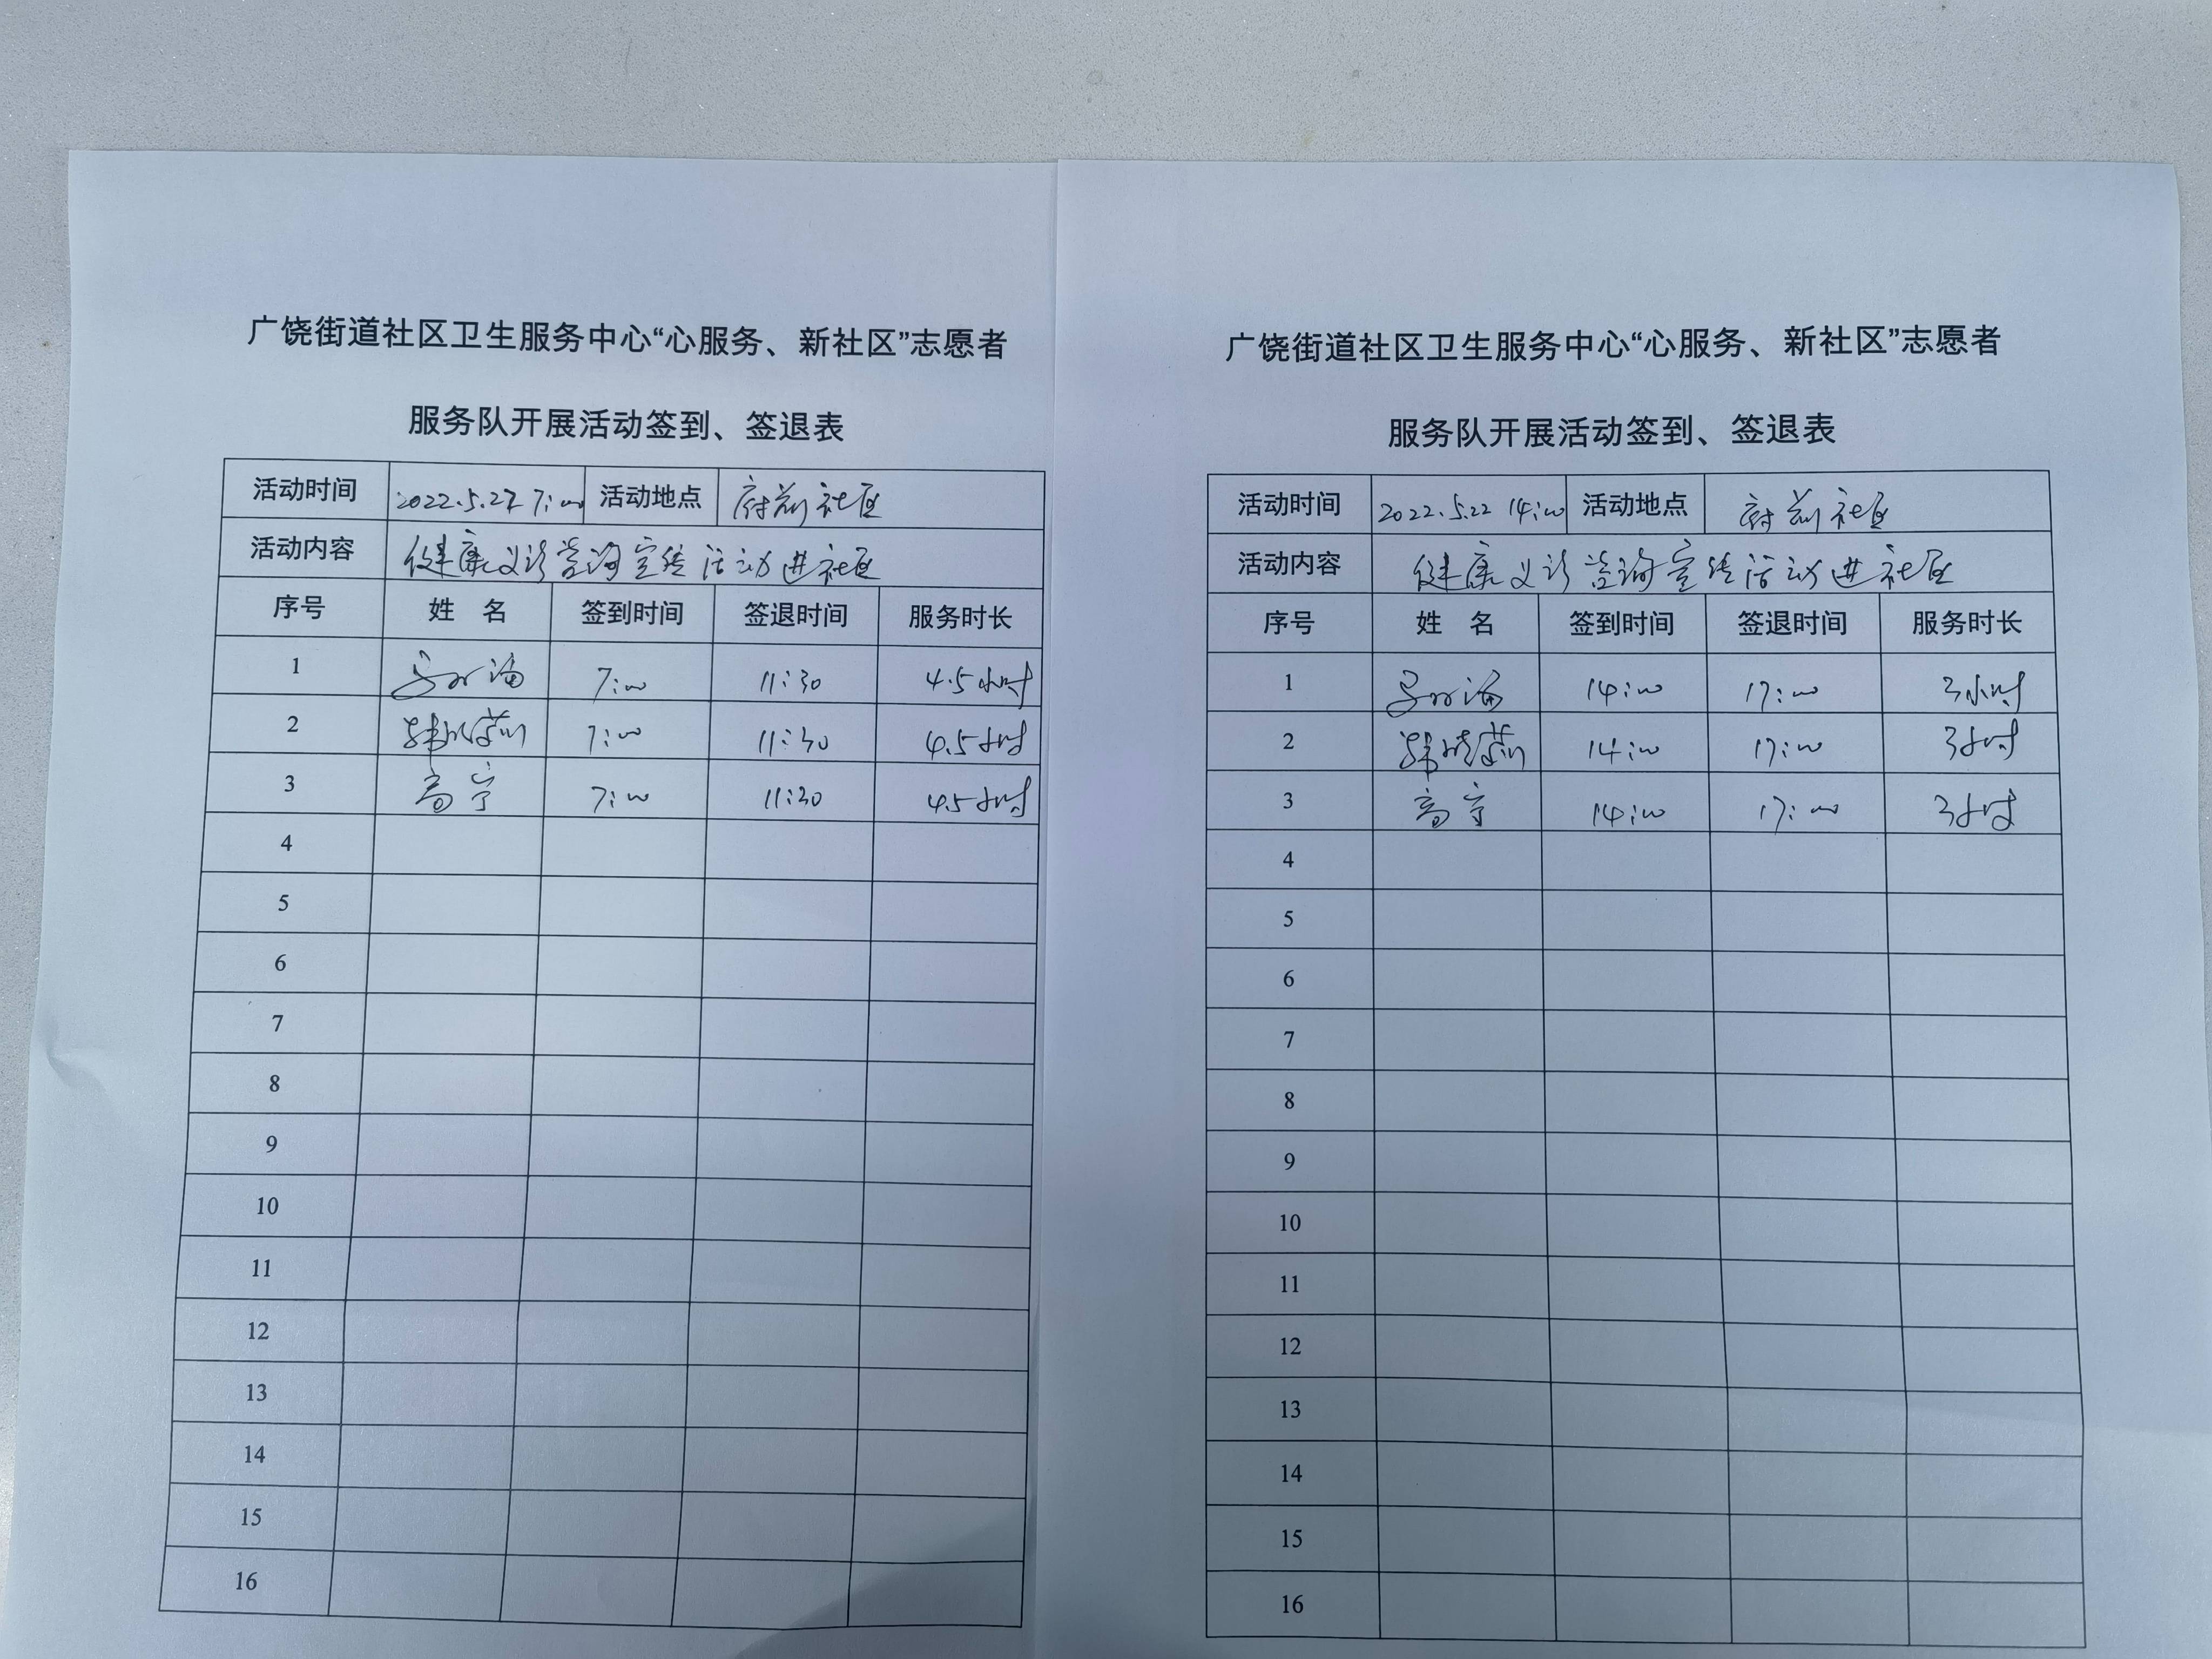 广饶街道社区卫生服务中心“心服务、新社区”志愿者
服务队开展活动签到、签退表
活动时间 2022.5.22 7:00 活动地点 府前社区
活动内容 健康义诊咨询宣传活动进社区
序号 姓 名 签到时间 签退时间 服务时长
1 7:00 11:30 4.5小时
2 韩晓茹 7:00 11:30 4.5小时
3 高宁 7:00 11:30 4.5小时
4
5
6
7
8
9
10
11
12
13
14
15
16
广饶街道社区卫生服务中心“心服务、新社区”志愿者
服务队开展活动签到、签退表
活动时间 2022.5.22 14:00 活动地点 府前社区
活动内容 健康义诊咨询宣传活动进社区
序号 姓 名 签到时间 签退时间 服务时长
1 14:00 17:00 3小时
2 韩晓茹 14:00 17:00 3小时
3 高宁 14:00 17:00 3小时
4
5
6
7
8
9
10
11
12
13
14
15
16